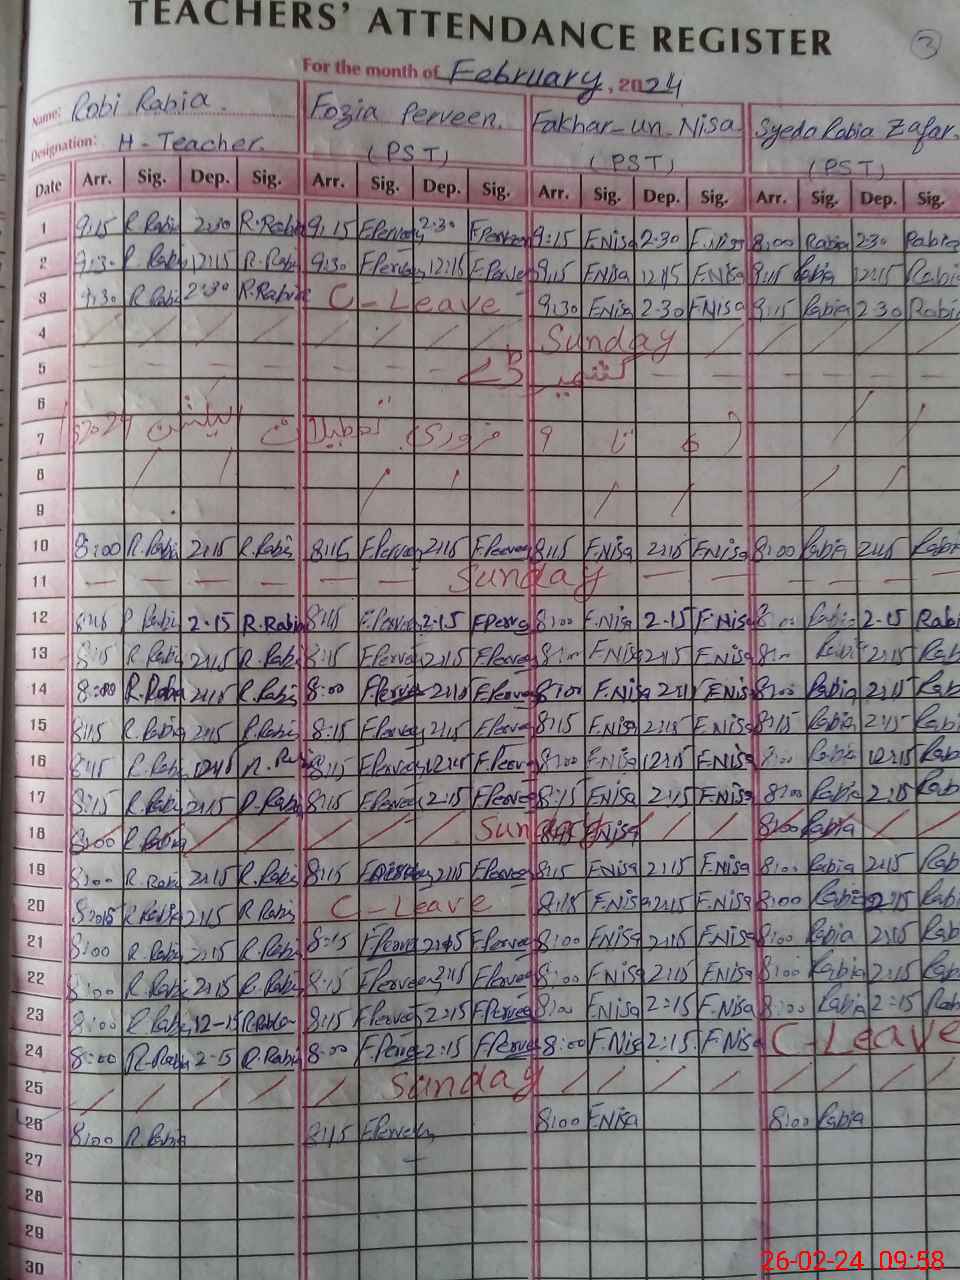 TEACHERS' ATTENDANCE REGISTER
3
For the month of February, 2024
Name: Robi Rabia. Fozia Perveen. Fakhar-un-Nisa Syeda Rabia Zafar.
Designation: H-Teacher. (PST) (PST) (PST)
Date Arr. Sig. Dep. Sig. Arr. Sig. Dep. Sig. Arr. Sig. Dep. Sig. Arr. Sig. Dep. Sig.
1 9:15 R.Rabi 2:30 R.Rabi 9:15 F.Perveen 2:30 F.Perveen 9:15 F.Nisa 2:30 F.Nisa 8:00 Rabia 2:30 Rabia
2 9:30 R.Rabi 12:15 R.Rabi 9:30 F.Perveen 12:15 F.Perveen 9:15 F.Nisa 12:15 F.Nisa 9:15 Rabia 12:15 Rabia
3 9:30 R.Rabi 2:30 R.Rabia C-Leave 9:30 F.Nisa 2:30 F.Nisa 9:15 Rabia 2:30 Rabia
4 Sunday
5 کشمیر ڈے
6
7 (6 تا 9 فروری) تعطیلات الیکشن 2024
8
9
10 8:00 R.Rabi 2:15 R.Rabi 8:15 F.Perveen 2:15 F.Perveen 8:15 F.Nisa 2:15 F.Nisa 8:00 Rabia 2:15 Rabi
11 Sunday
12 8:15 R.Rabi 2-15 R.Rabi 8:15 F.Perveen 2-15 F.Perve 8:00 F.Nisa 2-15 F.Nisa Rabia 2-15 Rabi
13 8:15 R.Rabi 2:15 R.Rabi 8:15 F.Perveen 2:15 F.Perveen F.Nisa 2:15 F.Nisa Rabia 2:15 Rab
14 8:00 R.Raba 2:15 R.Rabi 8:00 F.Perveen F.Perveen 8:00 F.Nisa F.Nisa 8:00 Rabia 2:15 Rab
15 8:15 R.Rabi 2:15 R.Rabi 8:15 F.Perveen 2:15 F.Perveen 8:15 F.Nisa 2:15 F.Nisa 8:15 Rabia 2:15 Rabi
16 8:15 R.Rabi 12:15 R.Rabi 8:15 F.Perveen 12:15 F.Perveen 8:00 F.Nisa 12:15 F.Nisa 8:00 Rabia 12:15 Rab
17 8:15 R.Rabi 2:15 R.Rabi 8:15 F.Perveen 2:15 F.Perveen 8:15 F.Nisa 2:15 F.Nisa 8:00 Rabia 2:15 Rab
18 8:00 R.Rabia Sunday F.Nisa 8:00 Rabia
19 8:00 R.Rabi 2:15 R.Rabi 8:15 2:15 F.Perveen 8:15 F.Nisa 2:15 F.Nisa 8:00 Rabia 2:15 Rab
20 R.Rabia 2:15 R.Rabi C-Leave 8:15 F.Nisa 2:15 F.Nisa 8:00 Rabia 2:15 Rabi
21 8:00 R.Rabi 2:15 R.Rabi 8:15 F.Perve 2:15 F.Perveen 8:00 F.Nisa 2:15 F.Nisa 8:00 Rabia 2:15 Rab
22 8:00 R.Rabi 2:15 R.Rabi 8:15 F.Perveen 2:15 F.Perveen 8:00 F.Nisa 2:15 F.Nisa 8:00 Rabia 2:15 Rab
23 8:00 R.Rabi 12-15 R.Rabia 8:15 F.Perveen 2:15 F.Perveen 8:00 F.Nisa 2:15 F.Nisa 8:00 Rabia 2:15 Rab
24 8:00 R.Rabi 2-5 R.Rabi 8:00 F.Perve 2:15 F.Perve 8:00 F.Nisa 2:15 F.Nisa C-Leave
25 Sunday
26 8:00 R.Rabia 8:15 F.Perveen 8:00 F.Nisa 8:00 Rabia
27
28
29
30
26-02-24 09:58